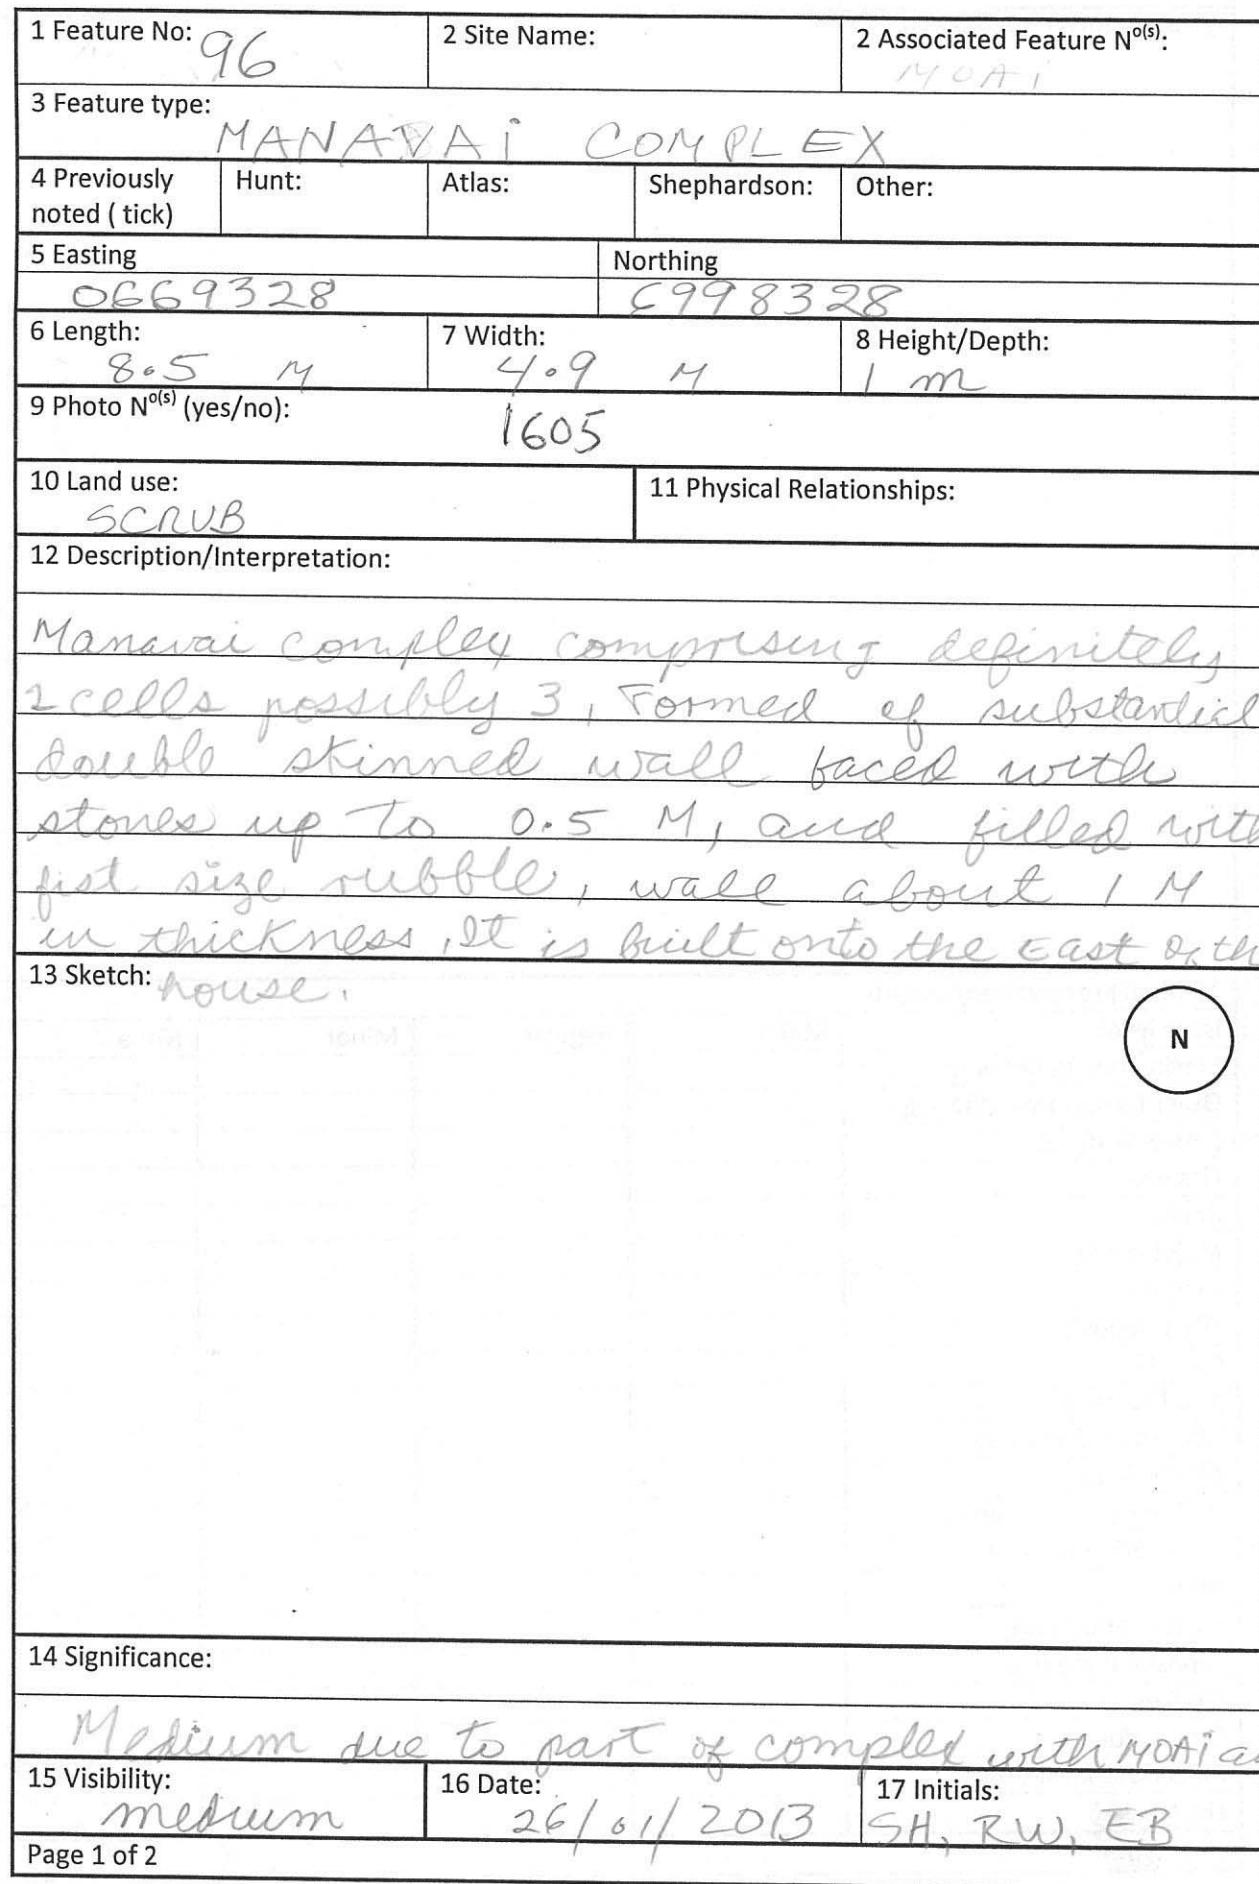 1 Feature No: 96
2 Site Name:
2 Associated Feature Nº(s): MOAi
3 Feature type: MANAVAi COMPLEX
4 Previously noted ( tick)
Hunt:
Atlas:
Shephardson:
Other:
5 Easting
Northing
0669328
6998328
6 Length: 8.5 M
7 Width: 4.9 M
8 Height/Depth: 1 m
9 Photo Nº(s) (yes/no): 1605
10 Land use: SCRUB
11 Physical Relationships:
12 Description/Interpretation:
Manavai complex comprising definitely
2 cells possibly 3, Formed of substantial
double skinned wall faced with
stones up to 0.5 M, and filled with
fist size rubble, wall about 1 M
in thickness, It is built onto the East of th
13 Sketch: house.
N
14 Significance:
Medium due to part of complex with MOAi
15 Visibility: medium
16 Date: 26/01/2013
17 Initials: SH, RW, EB
Page 1 of 2